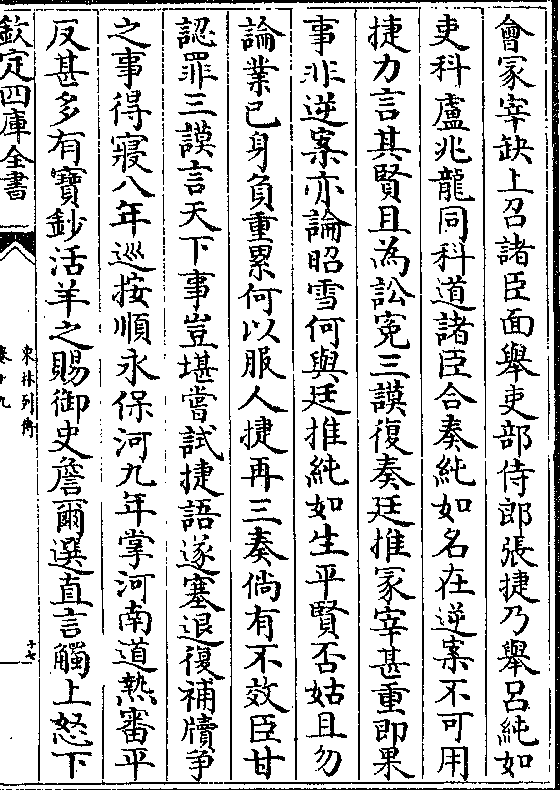 會冡宰缺上召諸臣面舉吏部侍郎張捷乃舉吕純如
吏科盧兆龍同科道諸臣合奏純如名在逆案不可用
捷力言其賢且為訟寃三謨復奏廷推冡宰甚重即果
事非逆案亦論昭雪何與廷推純如生平賢否姑且勿
論業已身負重累何以服人捷再三奏倘有不效臣甘
認罪三謨言天下事豈堪嘗試捷語遂塞退復補牘爭
之事得寢八年巡按順永保河九年掌河南道熱審平
反甚多有寶鈔活羊之賜御史詹爾選直言觸上怒下
欽定四庫全書
東林列傳
卷十九